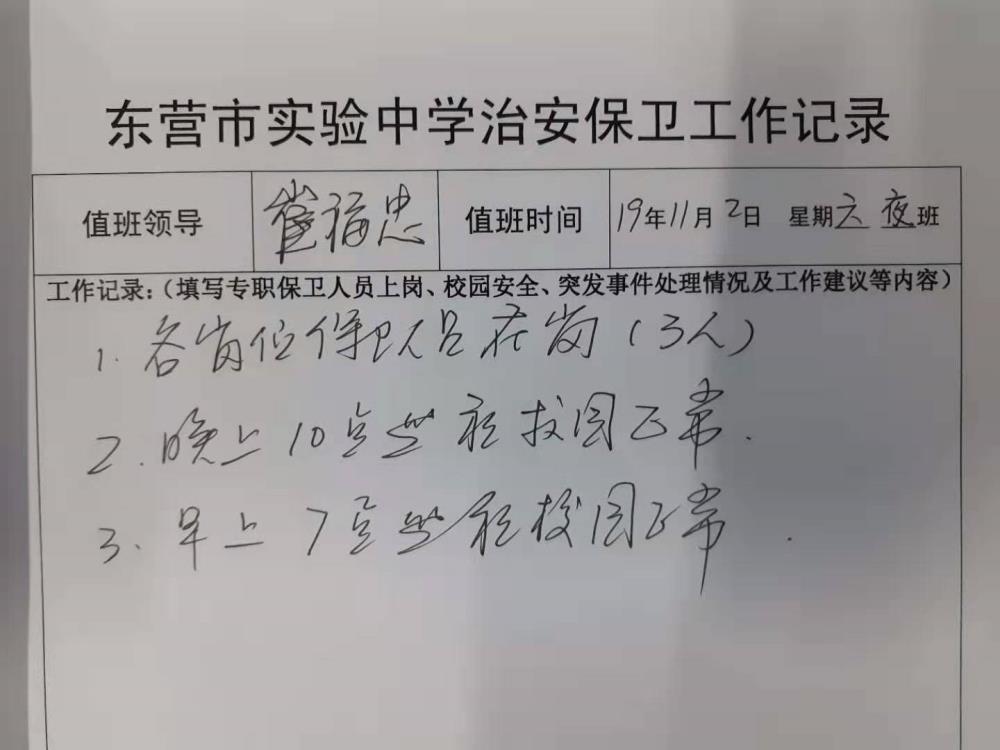 东营市实验中学治安保卫工作记录
值班领导 崔福忠 值班时间 19年11月2日 星期六夜班
工作记录:(填写专职保卫人员上岗、校园安全、突发事件处理情况及工作建议等内容)
1. 各岗位保卫人员在岗(3人)
2. 晚上10点巡视校园正常.
3. 早上7点巡视校园正常.